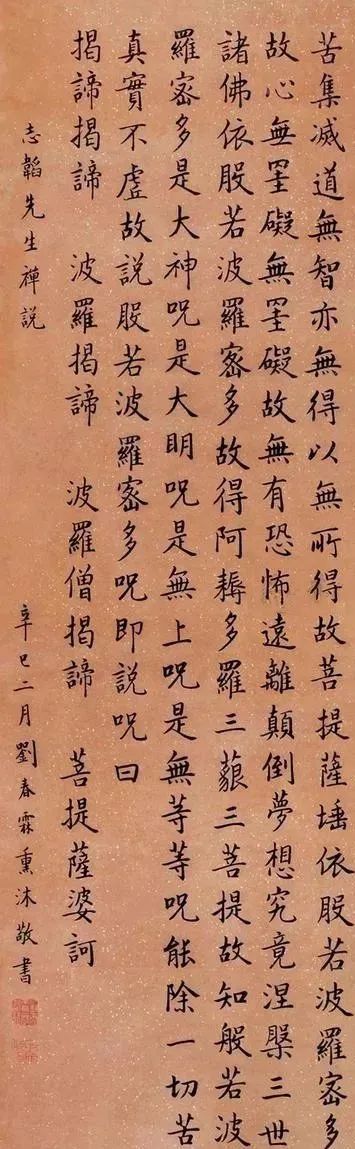 苦集滅道無智亦無得以無所得故菩提薩埵依般若波羅密多
故心無罣礙無罣礙故無有恐怖遠離顛倒夢想究竟涅槃三世
諸佛依般若波羅密多故得阿耨多羅三藐三菩提故知般若波
羅密多是大神呪是大明呪是無上呪是無等等呪能除一切苦
真實不虛故說般若波羅密多呪即說呪曰
揭諦揭諦　波羅揭諦　波羅僧揭諦　菩提薩婆訶
志韜先生禪說
辛巳二月劉春霖熏沐敬書